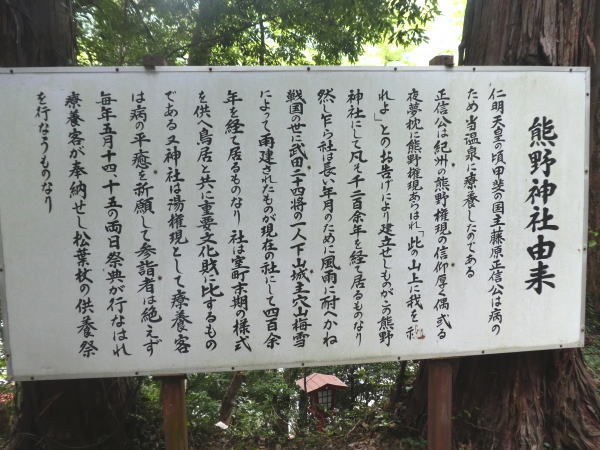 熊野神社由来
仁明天皇の頃甲斐の国主藤原正信公は病の
ため当温泉に療養したのである
正信公は紀州の熊野権現の信仰厚く偶或る
夜夢枕に熊野権現あらはれ「此の山上に我を祀
れよ」とのお告げにより建立せしものがこの熊野
神社にして凡そ千二百余年を経て居るものなり
然し乍ら社は長い年月のために風雨に耐へかね
戦国の世に武田二十四将の一人下山城主穴山梅雪
によって再建されたものが現在の社にして四百余
年を経て居るものなり社は室町末期の様式
を供へ鳥居と共に重要文化財に比するもの
である又神社は湯権現として療養客
は病の平癒を祈願して参詣者は絶えず
毎年五月十四、十五の両日祭典が行なはれ
療養客が奉納せし松葉杖の供養祭
を行なうものなり